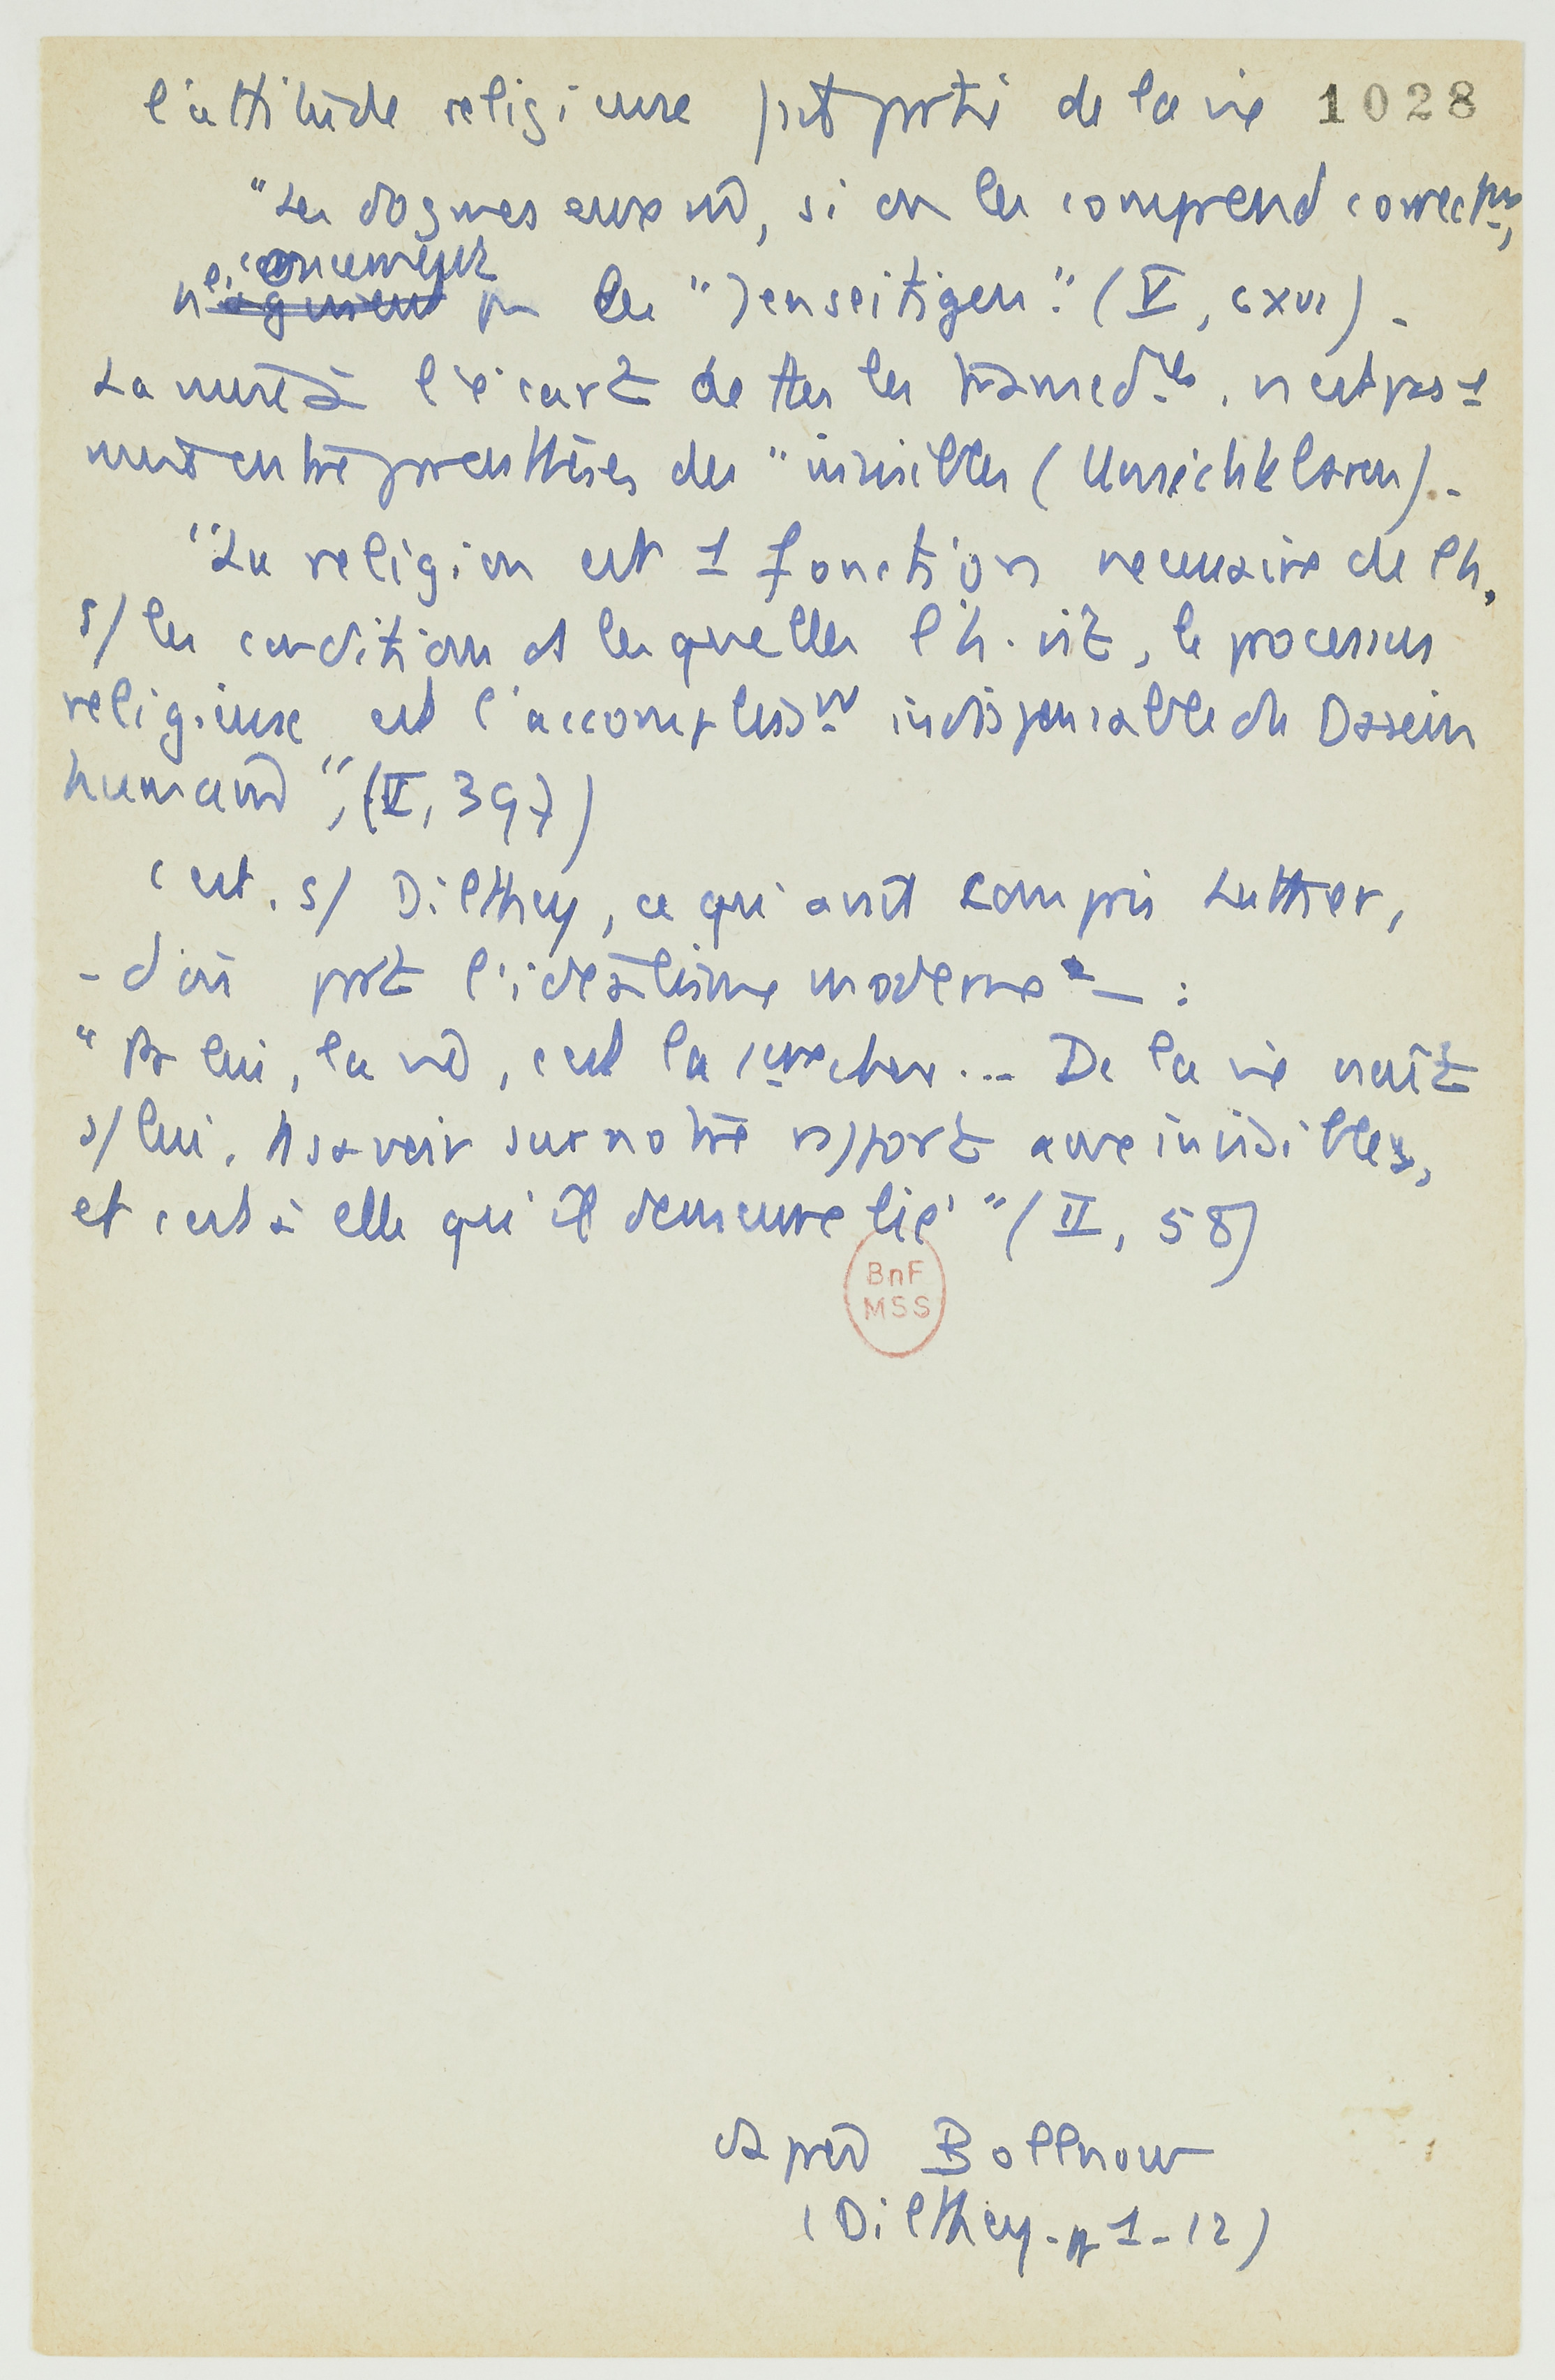 l'attitude religieuse fait partie de la vie 1028
"Les dogmes aux m̂, si on les comprend correctmt,
n'éconcernent pas les "Jenseitigen". (V, CXVI).
La mise à l'écart de ttes les transcd.ces, n'est pas 1
mise entre parenthèses des "invisibles (Unsichtbaren).
"La religion est 1 fonction necessaire de l'h.
s/ les conditions ds lesquelles l'h. vit, le processus
religieux est l'accomplisst indispensable du Dasein
humain", (V, 397)
c'est, s/ Dilthey, ce qu'avait compris Luther,
- d'où part l'idéalisme moderne - :
"Pr lui, la vie, c'est la ... De la vie naît
s/ lui, le savoir sur notre rapport aux invisibles,
et c'est à elle qu'il demeure lié" (II, 58)
BnF
MSS
d'après Bollnow
(Dilthey - p 1-12)